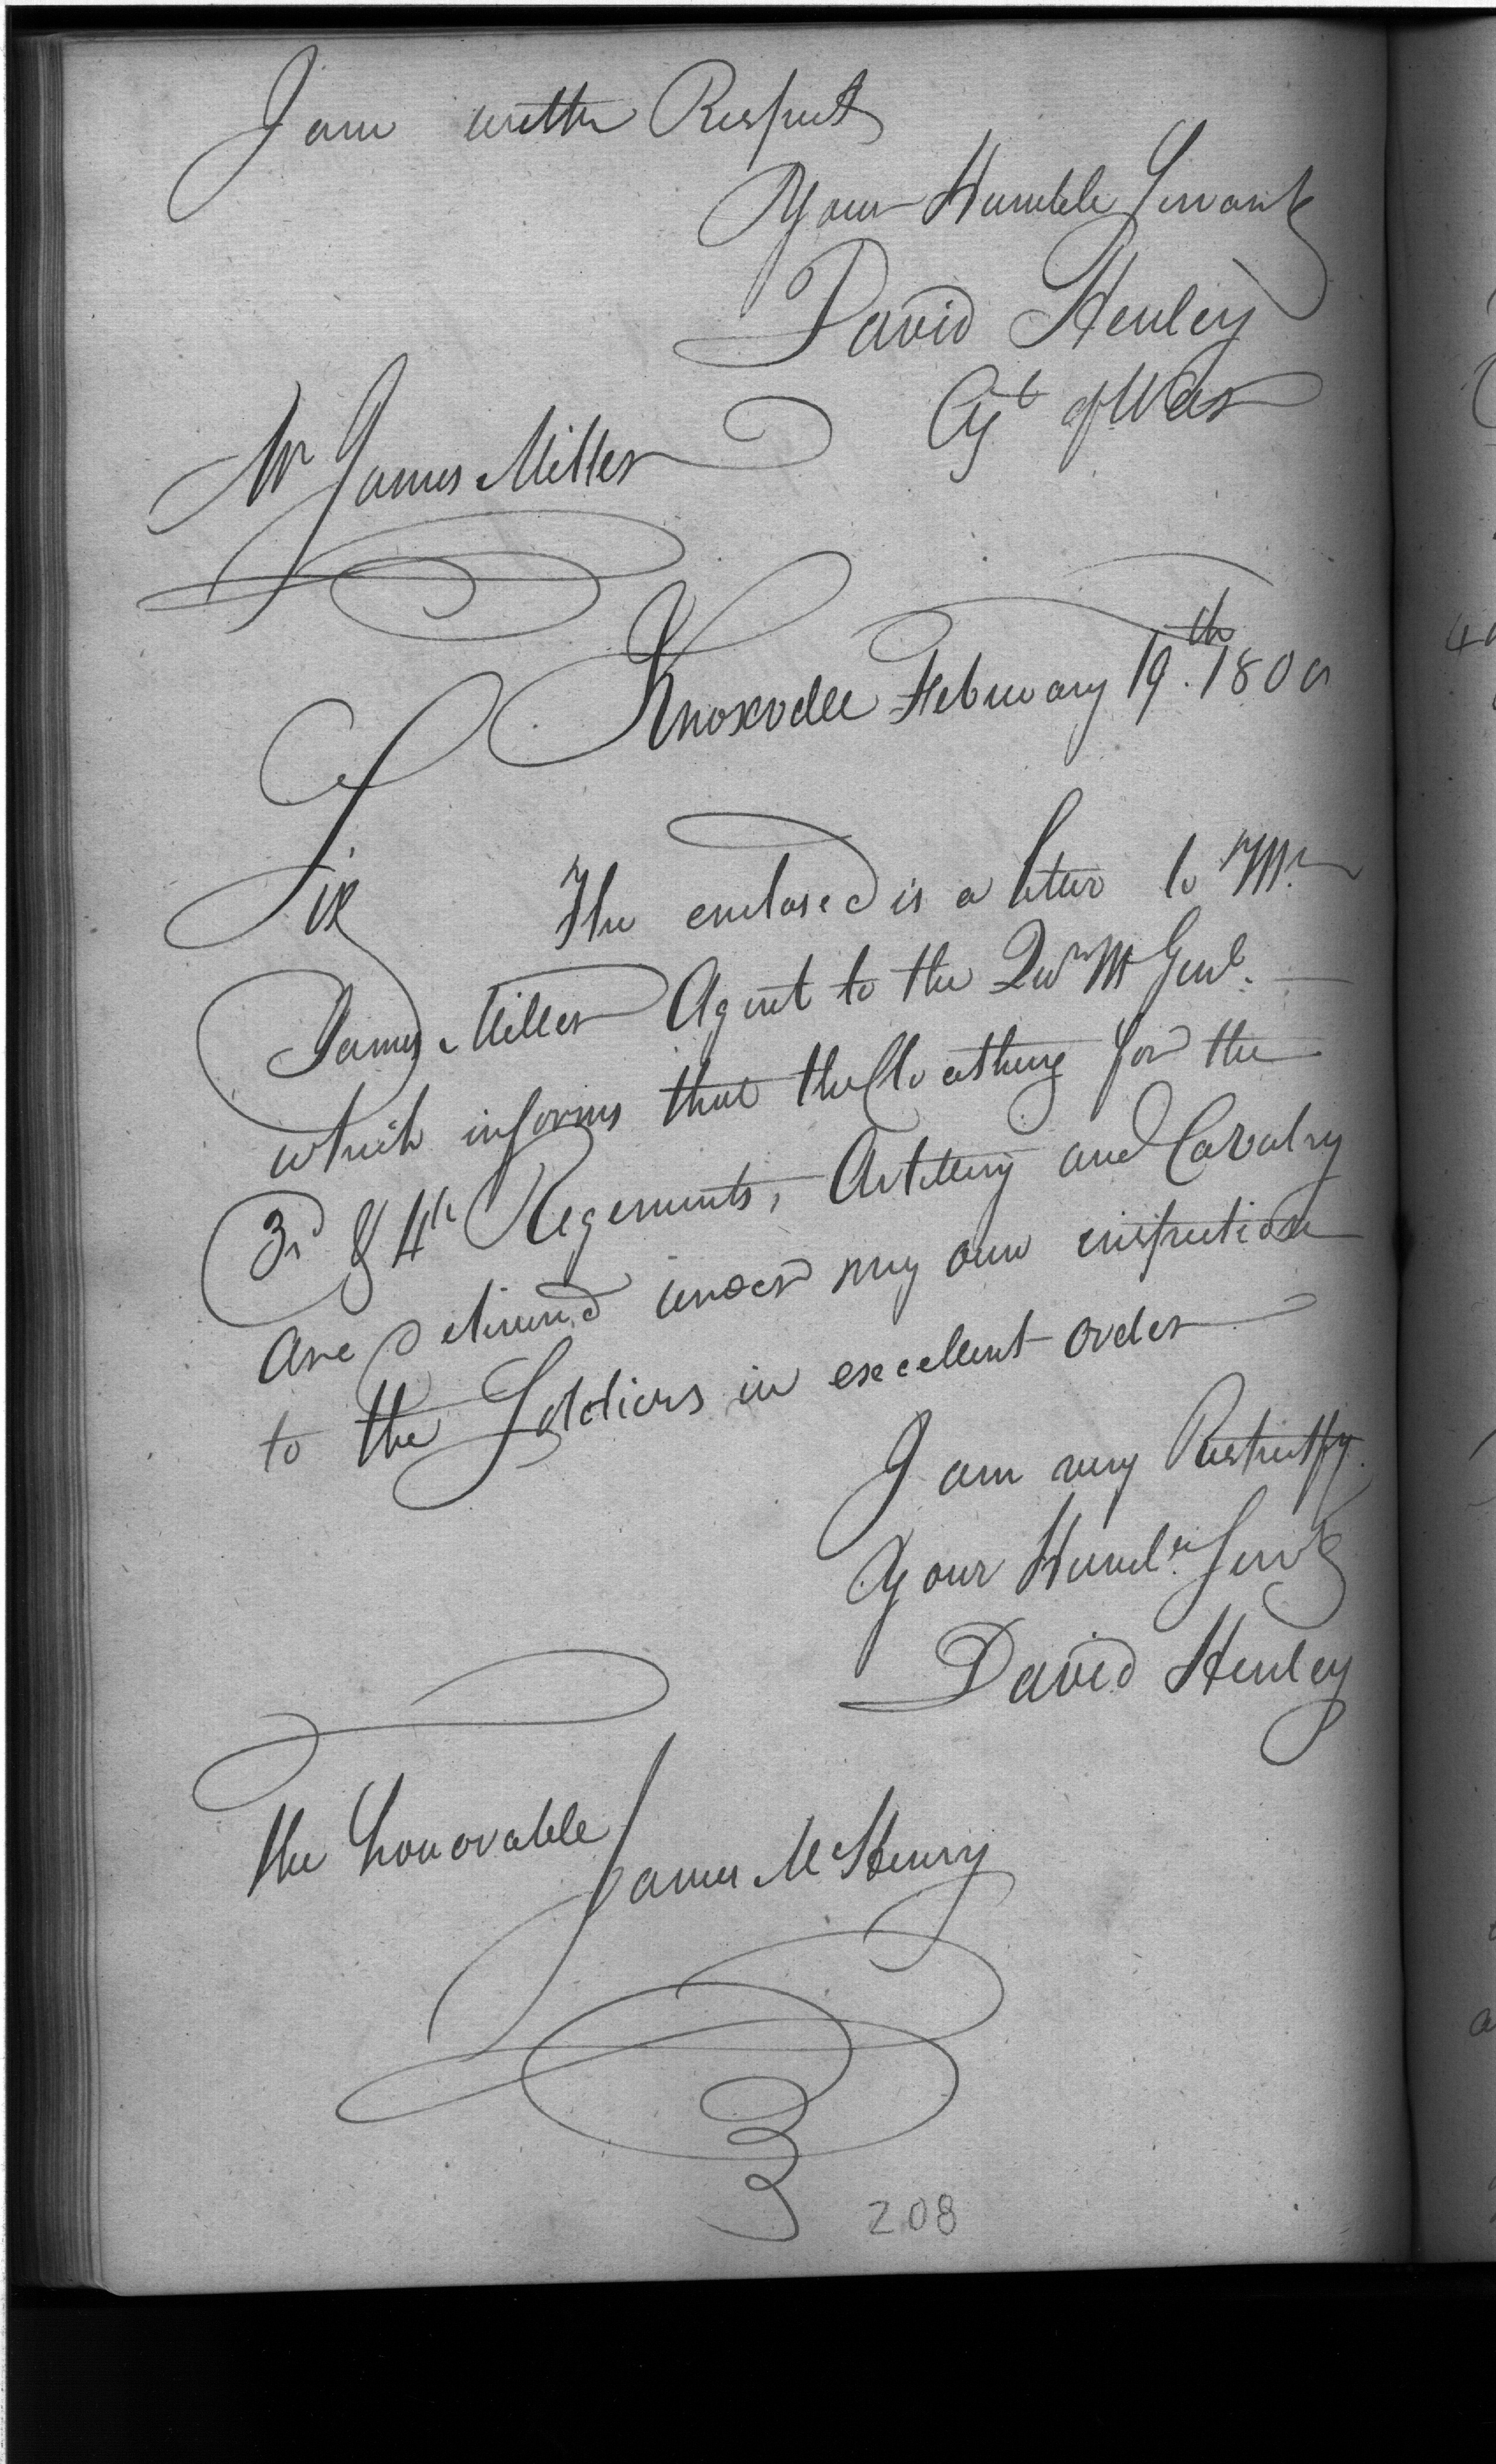 I am with Respect
Your Humble Servant
David Henley
Agt of War
Mr James Miller
Knoxville February 19th 1800
Sir
The enclosed is a letter to Mr.
James Miller Agent to the Qur M Genl.
which informs that the Cloathing for the
3d & 4th Regements, Artillery and Cavalry
are delivered under my own inspection
to the Soldiers in excellent order
I am very Respectfy.
Your Humle. Servt
David Henley
the honorable James McHenry
208